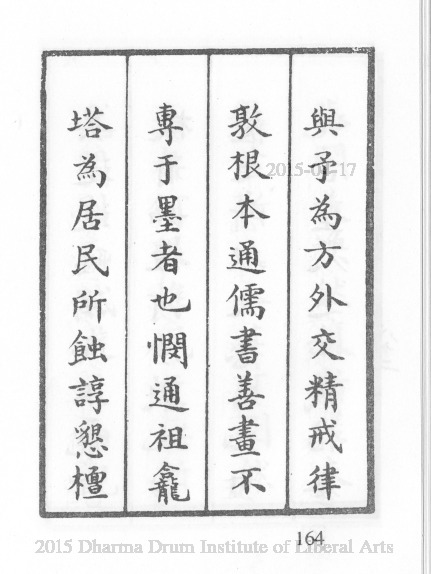 與予為方外交精戒律
敦根本通儒書善畫不
專于墨者也憫通祖龕
塔為居民所蝕諄懇檀
164
2015-04-17
2015 Dharma Drum Institute of Liberal Arts